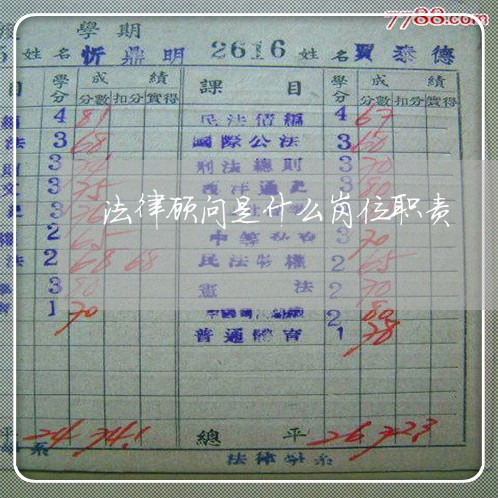 7788.com
學期
姓名 忻鼎明 2616 姓名 賈泰德
目 學分 成績 課目 學分 成績
分數 扣分 實得 分數 扣分 實得
4 81 民法債編 4 67
法 3 68 國際公法 3 60
3 刑法總則 3 70
3 75 西洋通史 3 80
法律顾问是什么岗位职责
2 65 3 70
法 2 68 68 民法物權 2 65
3 80 憲法 2 70
1 70 2 80
普通體育 1 78
平 24 74.1 總平 26 72.3
系 法律學系